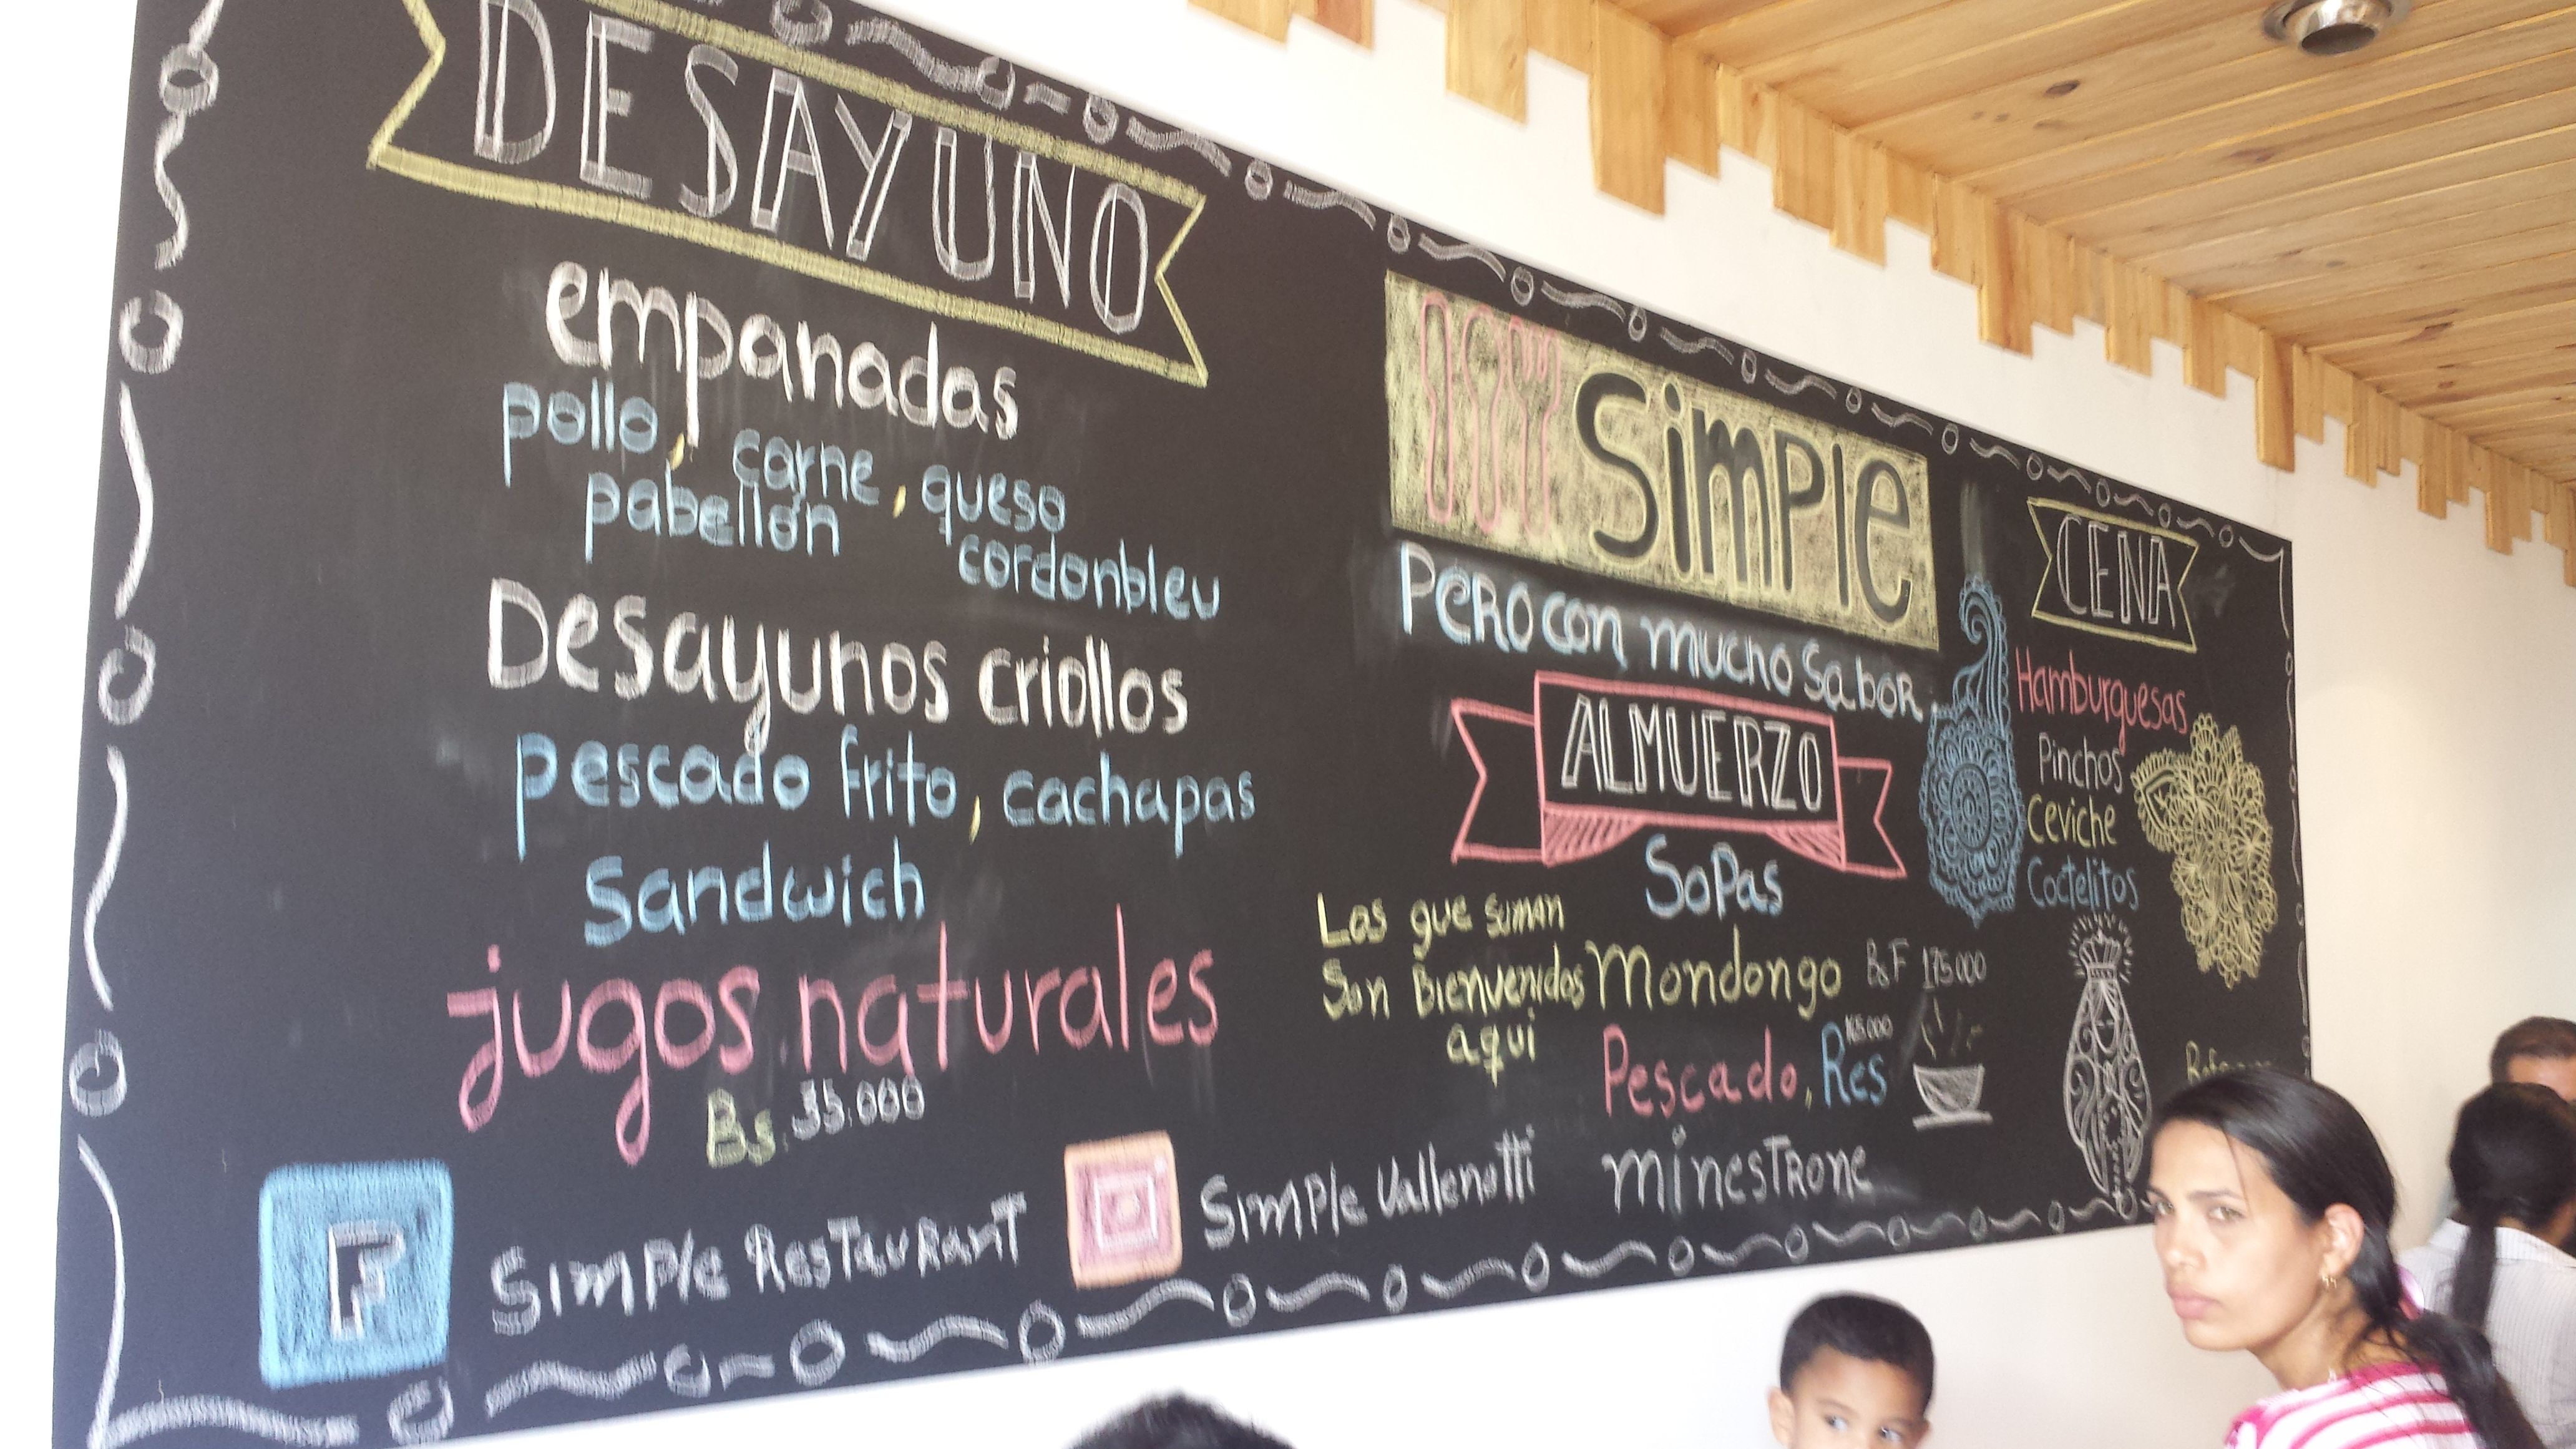 DESAYUNO
empanadas
pollo, carne, queso
pabellón
cordonbleu
Desayunos criollos
pescado frito, cachapas
Sandwich
jugos naturales
Bs. 35.000
F
SIMPle RESTAURANT
SIMPle Vallenotti
SIMPle
PERO CON MUCHO SABOR.
ALMUERZO
SOPAS
Los que suman
Son Bienvenidos
aquí
Mondongo BsF 175.000
165.000
Pescado, Res
MINESTRONE
CENA
Hamburguesas
Pinchos
Ceviche
Coctelitos